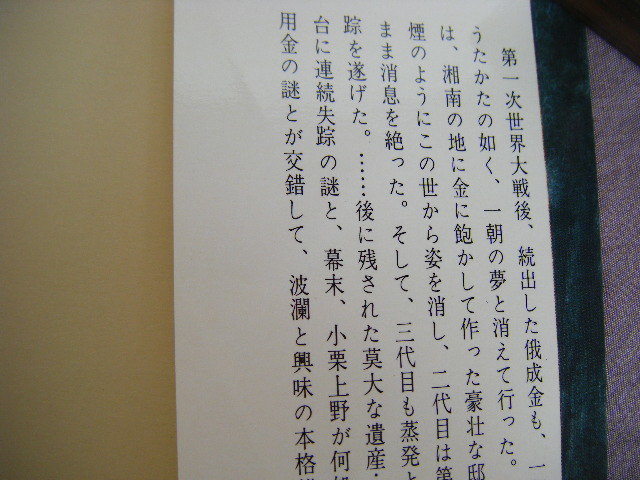 第一次世界大戦後、続出した俄成金も、一
うたかたの如く、一朝の夢と消えて行った。
は、湘南の地に金に飽かして作った豪壮な邸
煙のようにこの世から姿を消し、二代目は第
まま消息を絶った。そして、三代目も蒸発と
踪を遂げた。……後に残された莫大な遺産・
台に連続失踪の謎と、幕末、小栗上野が何処
用金の謎とが交錯して、波瀾と興味の本格